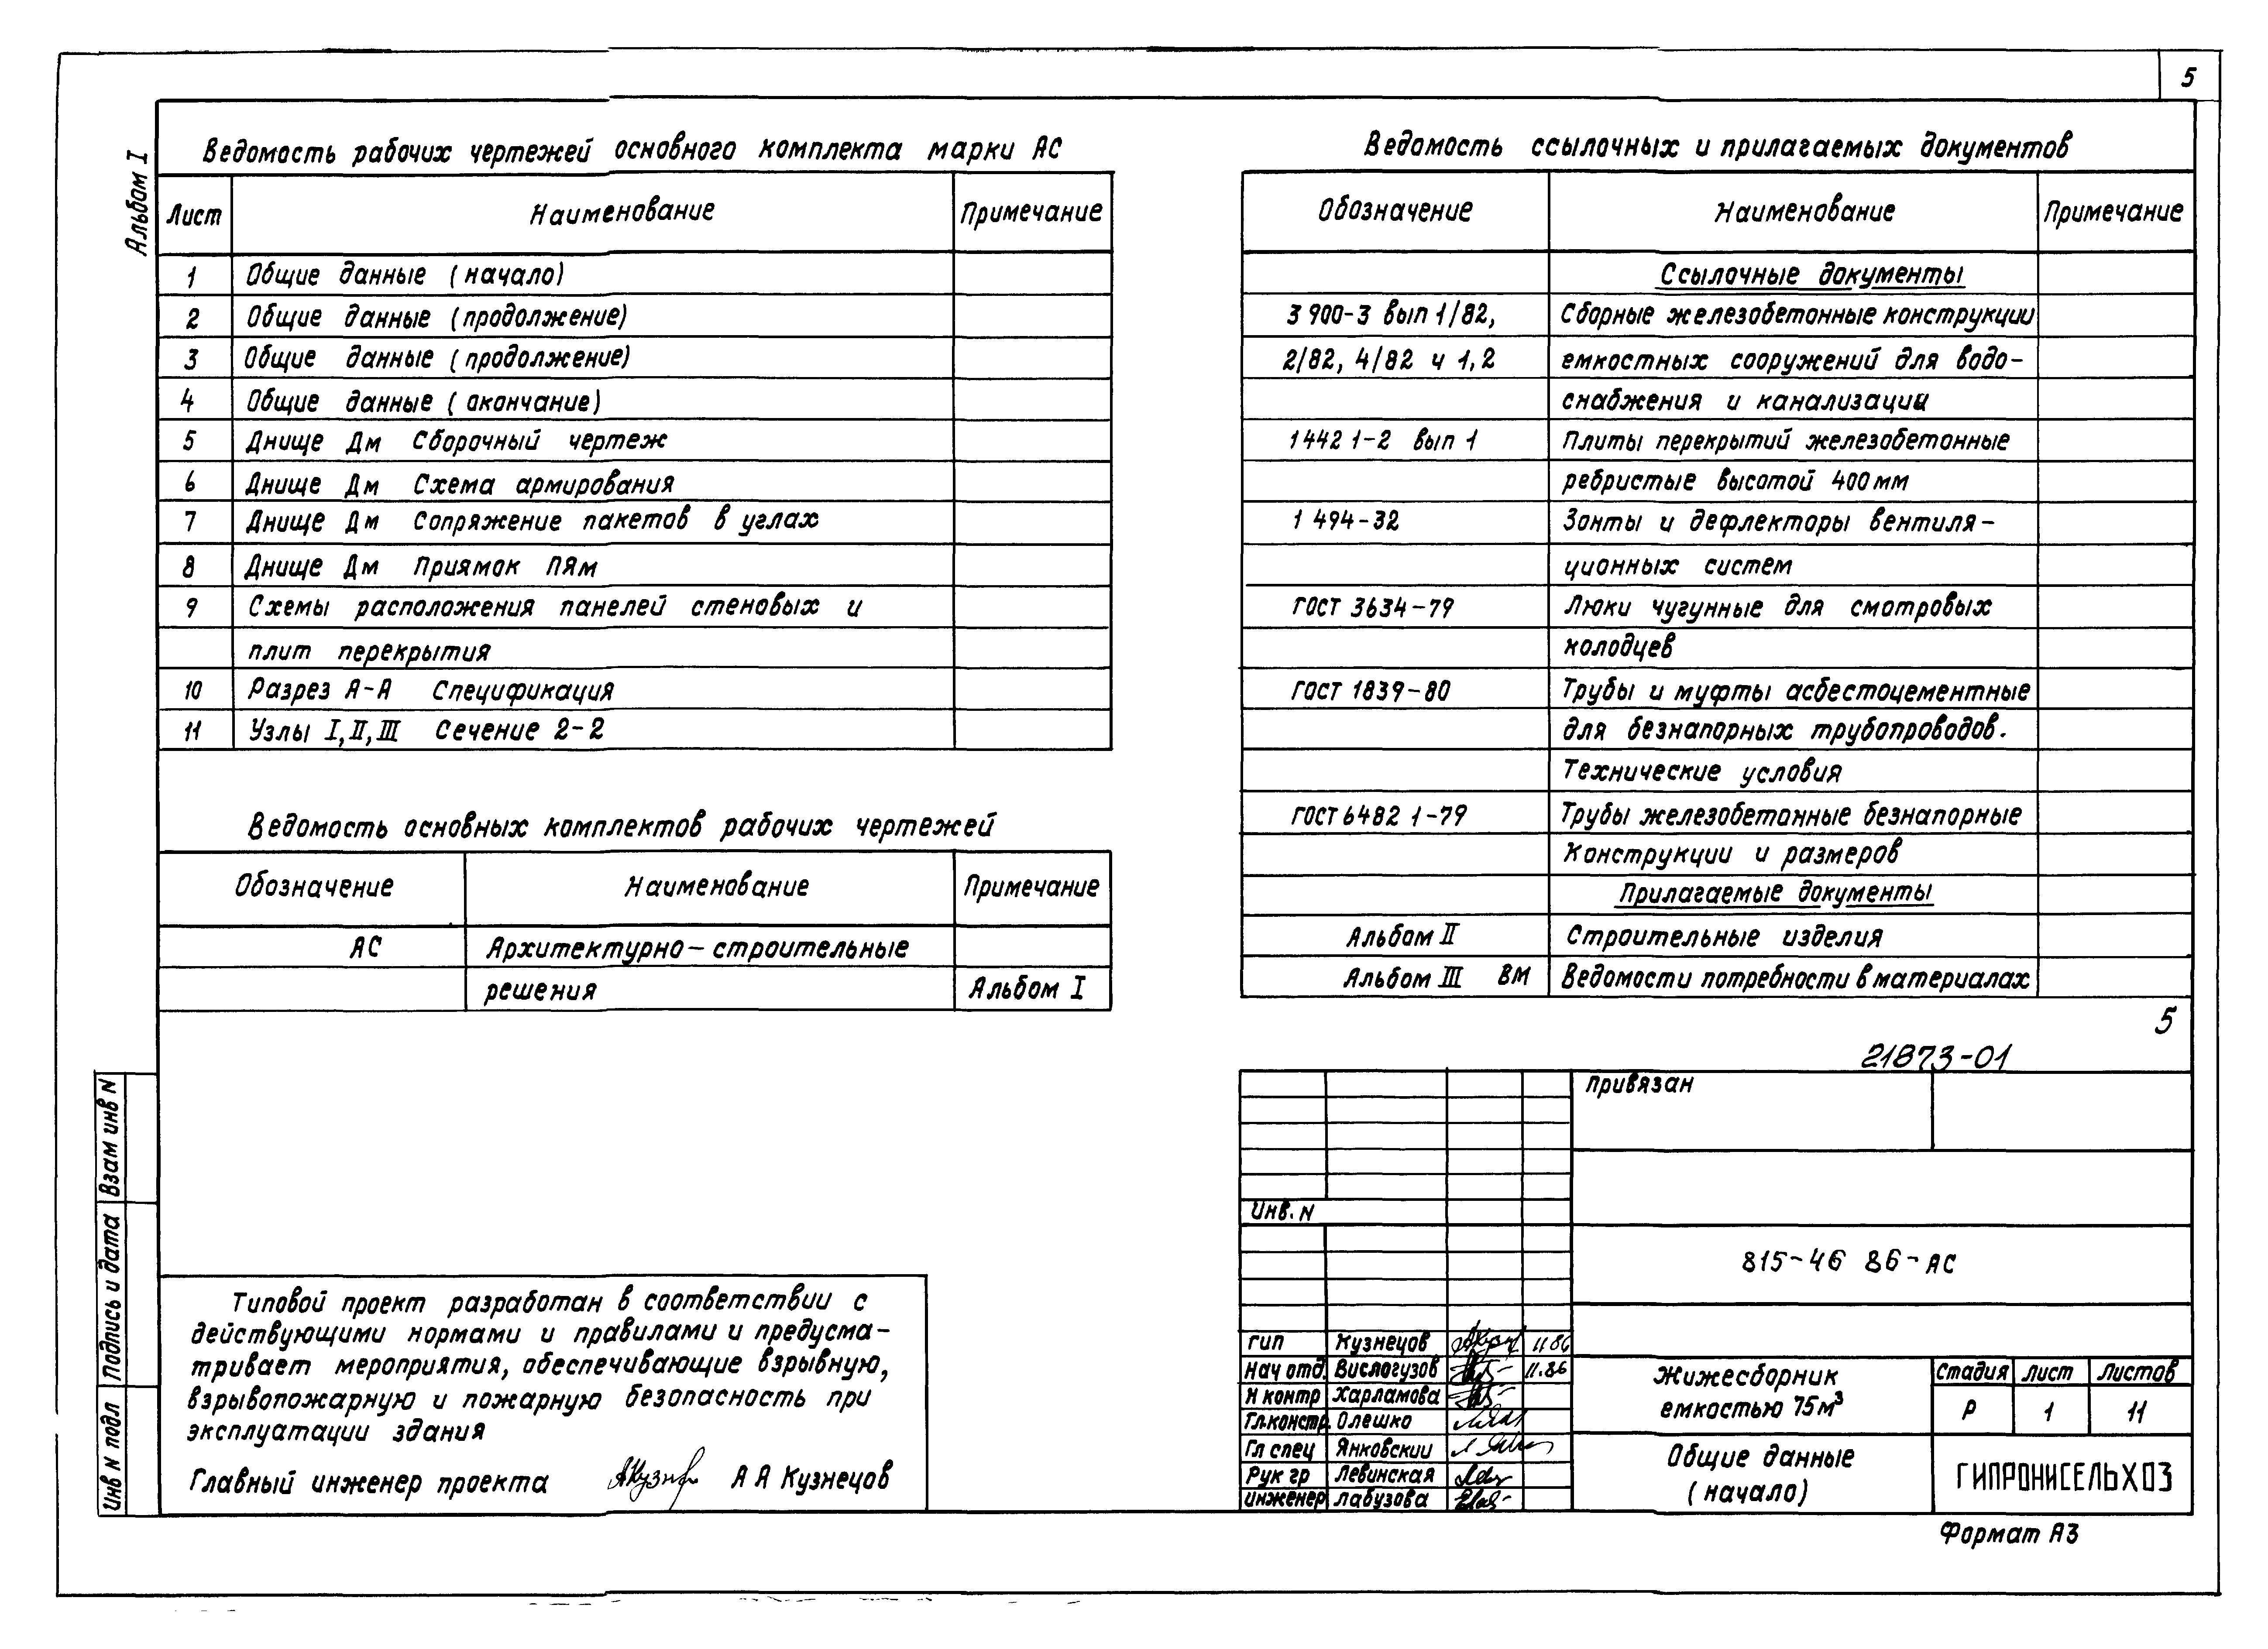 5
Альбом I
Ведомость рабочих чертежей основного комплекта марки АС
Лист Наименование Примечание
1 Общие данные (начало)
2 Общие данные (продолжение)
3 Общие данные (продолжение)
4 Общие данные (окончание)
5 Днище Дм Сборочный чертеж
6 Днище Дм Схема армирования
7 Днище Дм Сопряжение пакетов в углах
8 Днище Дм Приямок ПЯм
9 Схемы расположения панелей стеновых и
плит перекрытия
10 Разрез А-А Спецификация
11 Узлы I, II, III Сечение 2-2
Ведомость основных комплектов рабочих чертежей
Обозначение Наименование Примечание
АС Архитектурно-строительные
решения Альбом I
Ведомость ссылочных и прилагаемых документов
Обозначение Наименование Примечание
Ссылочные документы
3 900-3 вып 1/82, Сборные железобетонные конструкции
2/82, 4/82 ч 1,2 емкостных сооружений для водо-
снабжения и канализации
1 442 1-2 вып 1 Плиты перекрытий железобетонные
ребристые высотой 400 мм
1 494-32 Зонты и дефлекторы вентиля-
ционных систем
ГОСТ 3634-79 Люки чугунные для смотровых
колодцев
ГОСТ 1839-80 Трубы и муфты асбестоцементные
для безнапорных трубопроводов.
Технические условия
ГОСТ 6482 1-79 Трубы железобетонные безнапорные
Конструкции и размеров
Прилагаемые документы
Альбом II Строительные изделия
Альбом III ВМ Ведомости потребности в материалах
5
21873-01
Привязан
Инв. N
815-46 86-АС
ГИП Кузнецов 11 86
Нач отд. Вислогузов 11.86
Н контр Харламова
Гл.констр. Олешко
Гл спец Янковский
Рук гр Левинская
Инженер Лабузова
Жижесборник
емкостью 75м³
Стадия Лист Листов
Р 1 11
Общие данные
(начало)
ГИПРОНИСЕЛЬХОЗ
Формат А3
Типовой проект разработан в соответствии с
действующими нормами и правилами и предусма-
тривает мероприятия, обеспечивающие взрывную,
взрывопожарную и пожарную безопасность при
эксплуатации здания
Главный инженер проекта А А Кузнецов
Взам инв N
Подпись и дата
Инв N подл